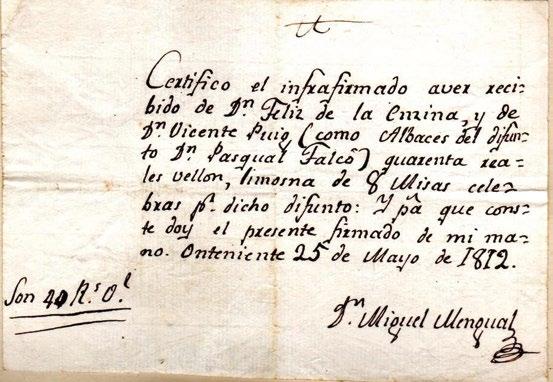 Certifico el infrafirmado aver reci-
bido de Dn Feliz de la Enzina, y de
Dn Vicente Puig (como Albaces del difun-
to Dn Pasqual Falcó) quarenta rea-
les vellon, limosna de 8 Misas cele-
bras pr. dicho difunto: Y pa que cons-
te doy el presente firmado de mi ma-
no. Onteniente 25 de Mayo de 1812.
Son 40 Rs. Vl
Dn Miguel Mengual